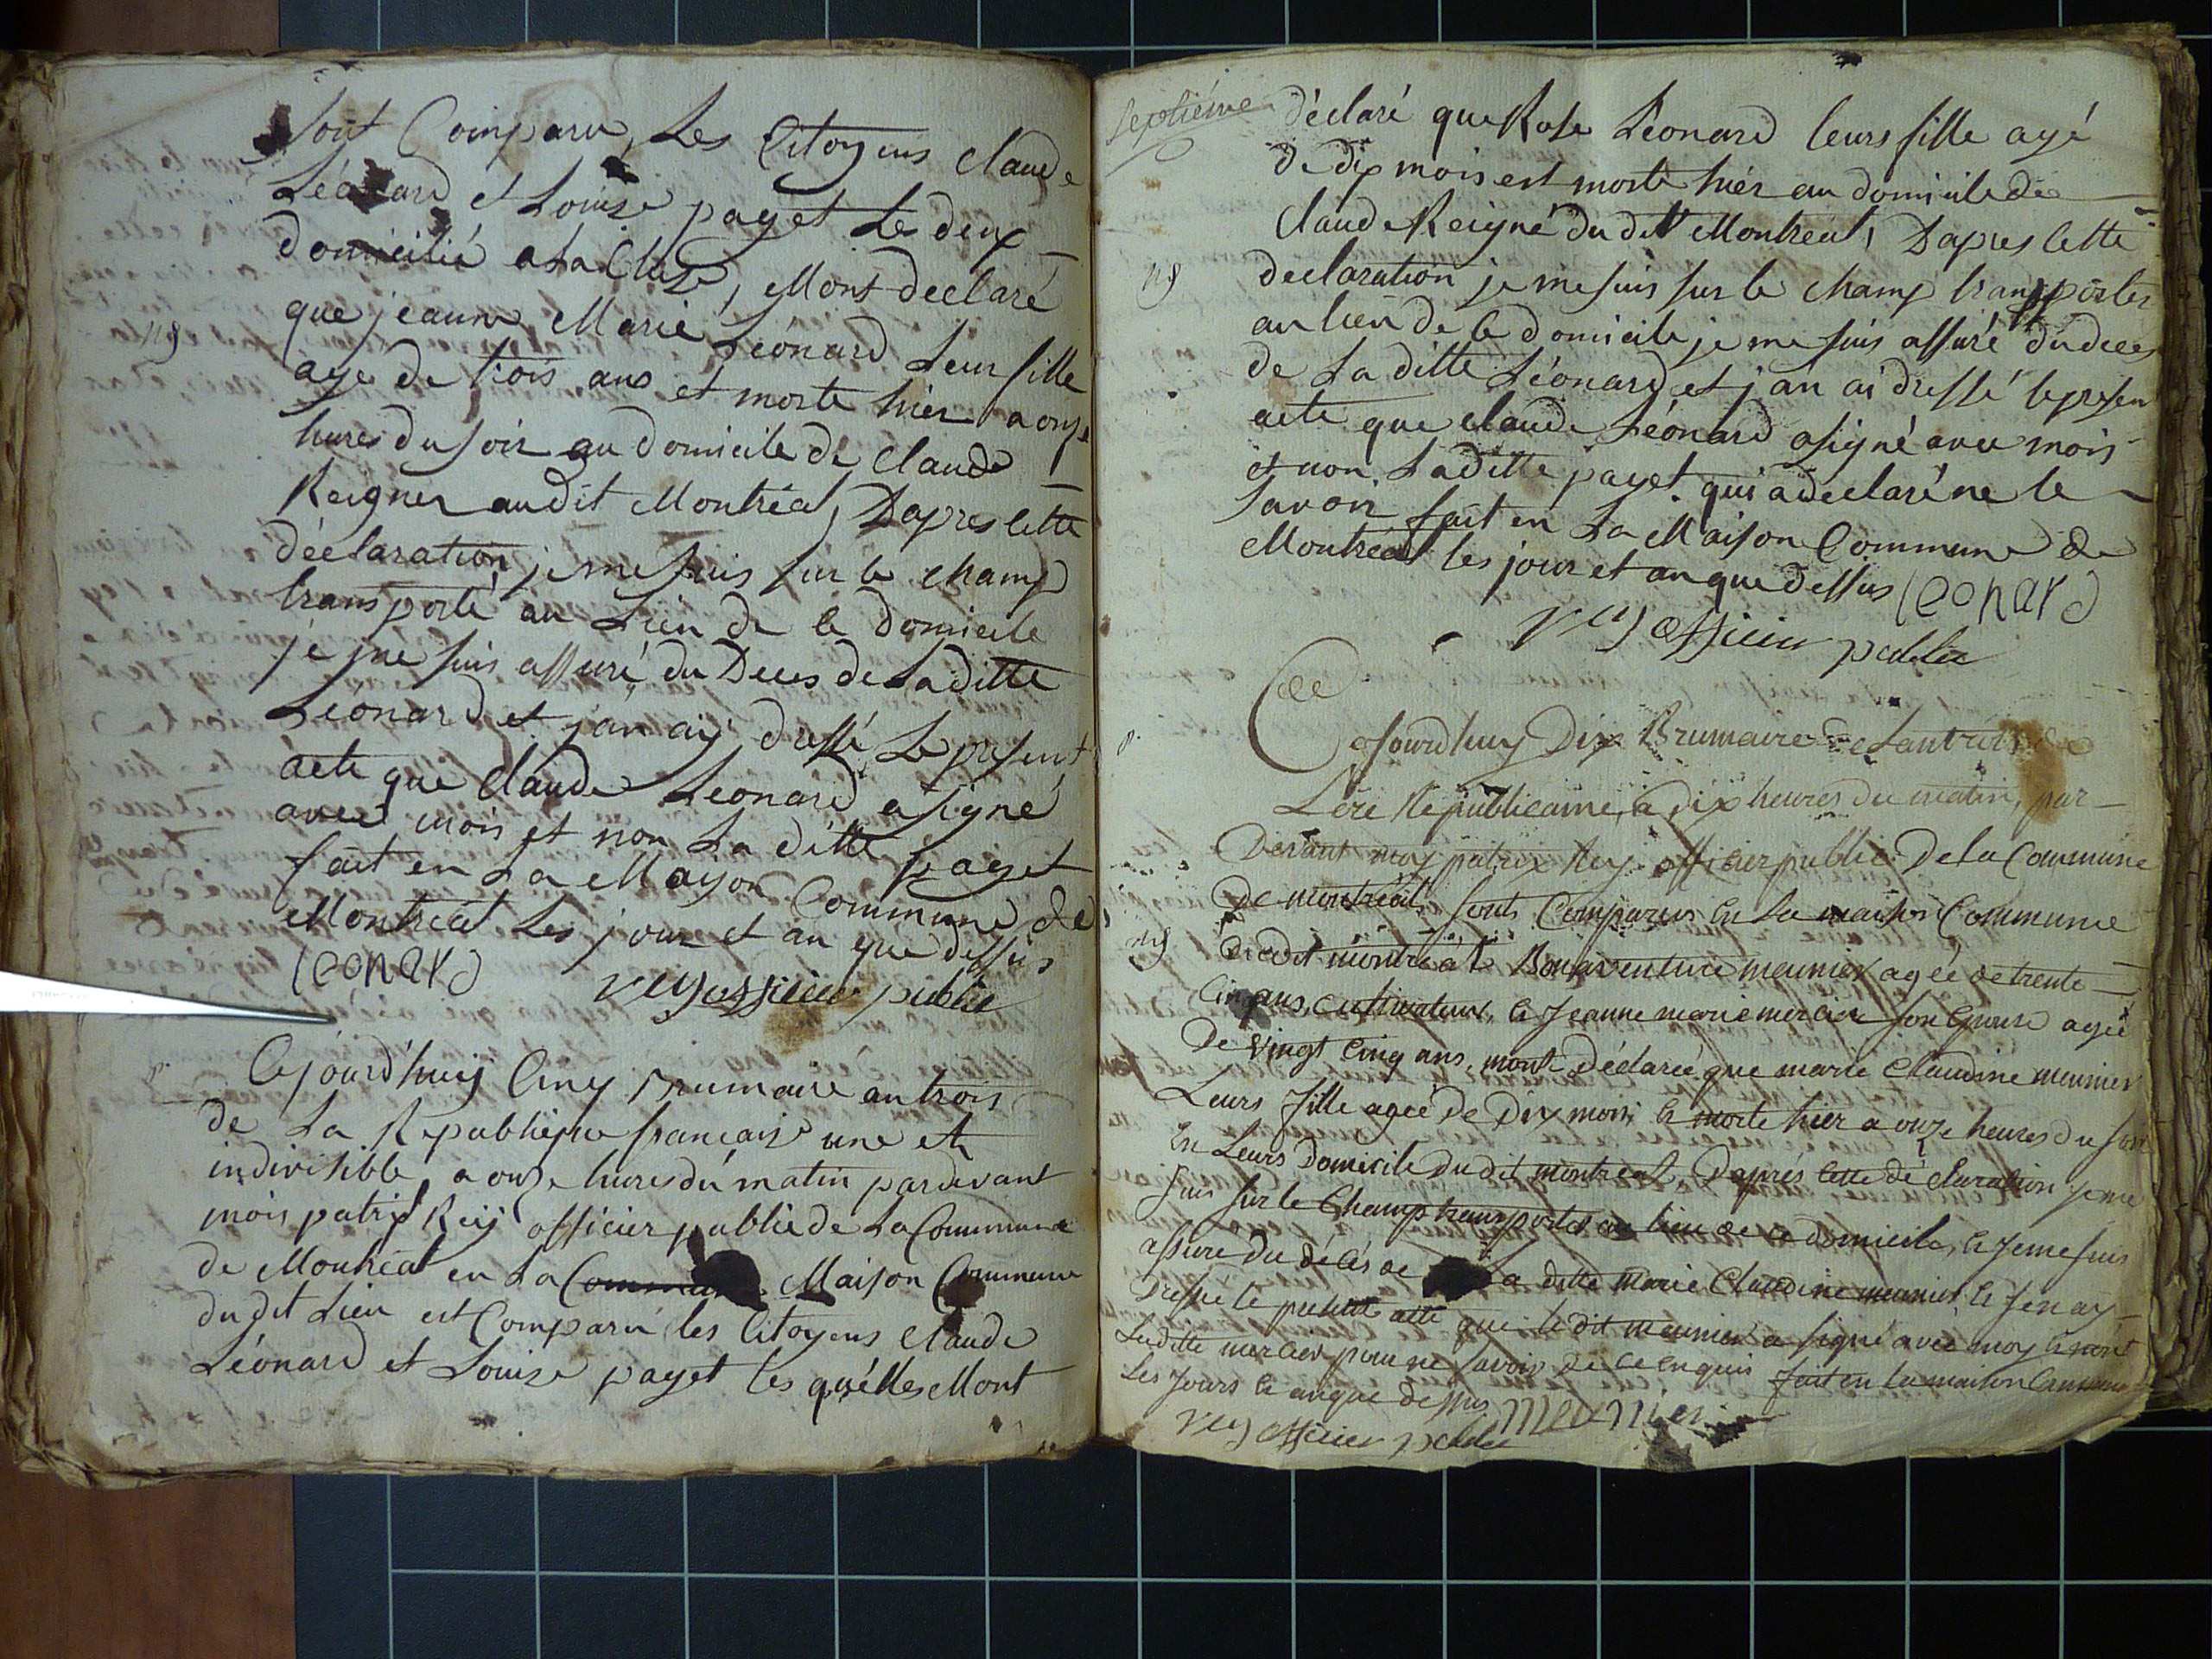 Sont Comparu, Les Citoyens Claude
Léonard et Louise payet Les deux
domicilié a La Cluse, Mont declaré
que jeanne Marie Léonard Leur fille
age de trois ans et morte hier a onze
hures du soir au domicile de Claude
Reigner audit Montréal, Dapres cette
déclaration je me suis sur le champ
transporté au Lieu de ce domicile
je me suis assuré du Deces de La ditte
Léonard et j'an ay dressé Le present
acte que Claude Léonard a signé
avec mois et non La ditte payet
fait en La Mayson Commune de
Montréal Les jour et an que dessus
leonard
rey officier public
Cejourd'huy Cinq Brumaire an trois
de La Republique francaise une et
indivisible, a onze hures du matin pardevant
mois patrix Reÿ officier public de La Commune
de Montréal en La Commune Maison Commune
dudit Lieu est Comparu les Citoyens Claude
Léonard et Louise payet les quélles Mont
septiéme
déclaré que Rose Léonard leurs fille agé
de dix mois est morte hiér au domicile de
Claude Reigné du dit Montréal, Dapres Cette
declaration je me suis sur le champ transporter
au lieu de ce domicile je me suis assuré du deces
de La ditte Léonard et j'an ai dressé le presen
acte que Claude Léonard a signé avec mois
et non La ditte payet qui a déclaré ne le
savoir fait en La Maison Commune de
Montréal les jour et an que dessus leonard
rey officier public
Cejourdhuy Dix Brumaire de Lan trois de
Lére Républicaine, a Dix heures du matin, par
Devant moy patrix Rey officier public De la Commune
De montréal, sont Comparus en La maison Commune
Dudit montréal Bonaventure meunier agée de trente
Cinq ans, cultivateur, et Jeanne marie mercier son épouse agée
De vingt Cinq ans, mont déclarée que marie Claudine meunier
Leurs fille agée De Dix mois et morte hier a onze heures du soir
En Leurs Domicile Dudit montréal, Daprés cette déclaration je me
suis sur le Champ transporter au lieu de ce domicile, et Jeme suis
assure du décés de La ditte Marie Claudine meunier, et Jen ay
Dressé le present acte que le dit meunier a signé avec moy et non
Laditte mercier pour ne savoir de ce enquis fait en La maison Commune
Les Jours et an que dessus meunier
rey officier public